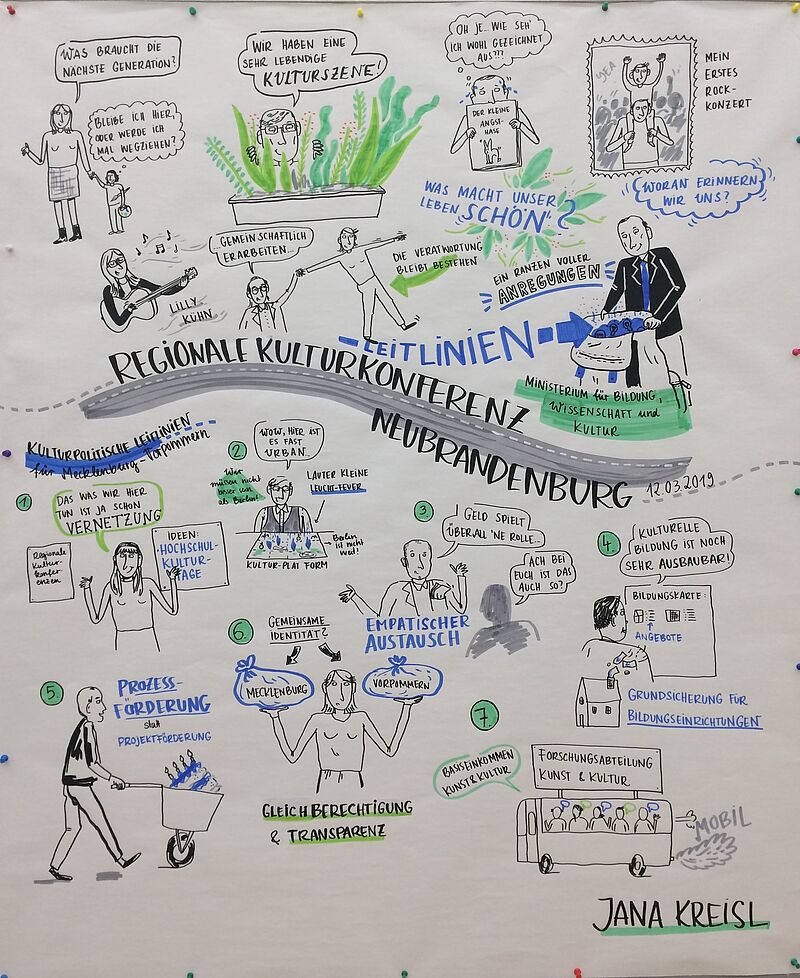 WAS BRAUCHT DIE
NÄCHSTE GENERATION?
BLEIBE ICH HIER,
ODER WERDE ICH
MAL WEGZIEHEN?
WIR HABEN EINE
SEHR LEBENDIGE
KULTURSZENE!
OH JE.. WIE SEH'
ICH WOHL GEZEICHNET
AUS???
DER KLEINE
ANGST-
HASE
YEA
MEIN
ERSTES
ROCK-
KONZERT
WAS MACHT UNSER
LEBEN "SCHÖN"?
WORAN ERINNERN
WIR UNS?
LILLY
KÜHN
GEMEINSCHAFTLICH
ERARBEITEN...
DIE VERATWORTUNG
BLEIBT BESTEHEN
EIN RANZEN VOLLER
ANREGUNGEN
LEITLINIEN
MINISTERIUM für BILDUNG,
WISSENSCHAFT und
KULTUR
REGIONALE KULTURKONFERENZ
NEUBRANDENBURG
12.03.2019
KULTURPOLITISCHE LEITLINIEN
für Mecklenburg-Vorpommern
1
DAS WAS WIR HIER
TUN IST JA SCHON
VERNETZUNG
Regionale
Kultur-
konfer
enzen
IDEEN:
HOCHSCHUL-
KULTUR-
TAGE
2
WOW, HIER IST
ES FAST
URBAN...
Wir
müssen nicht
besser sein
als Berlin!
LAUTER KLEINE
LEUCHT-FEUER
Berlin
ist nicht
weit!
KULTUR-PLATTFORM
3
GELD SPIELT
ÜBERALL 'NE ROLLE...
ACH BEI
EUCH IST DAS
AUCH SO?
EMPATISCHER
AUSTAUSCH
4.
KULTURELLE
BILDUNG IST NOCH
SEHR AUSBAUBAR!
BILDUNGSKARTE:
ANGEBOTE
GRUNDSICHERUNG FÜR
BILDUNGSEINRICHTUNGEN
5.
PROZESS-
FÖRDERUNG
statt
PROJEKTFÖRDERUNG
6.
GEMEINSAME
IDENTITÄT?
MECKLENBURG
VORPOMMERN
GLEICHBERECHTIGUNG
& TRANSPARENZ
7
BASISEINKOMMEN
KUNST & KULTUR
FORSCHUNGSABTEILUNG
KUNST & KULTUR
MOBIL
JANA KREISL